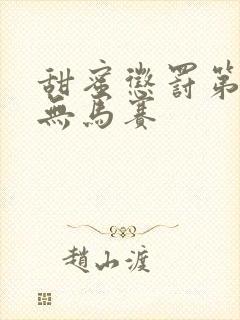 甜蜜懲罰第
無馬賽
趙山渡